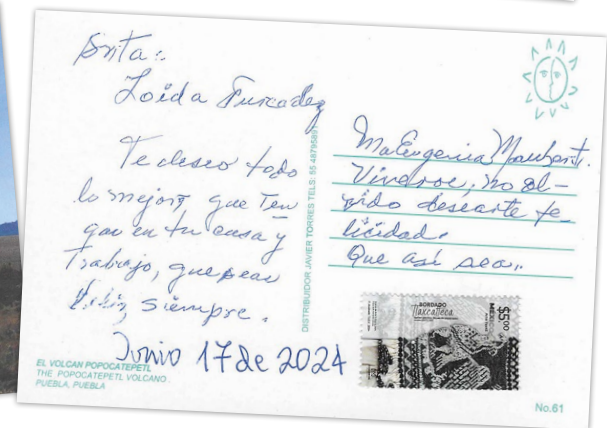 Srita:
Loida
Te deseo todo
lo mejor, que Ten
gas en tu casa y
Trabajo, que seas
feliz, siempre.
Junio 17 de 2024
EL VOLCAN POPOCATEPETL
THE POPOCATEPETL VOLCANO
PUEBLA, PUEBLA
DISTRIBUIDOR JAVIER TORRES TELS: 55 48795891
Ma Eugenia
Viveros, no ol-
vido desearte fe-
licidad.
Que así sea.
BORDADO
Tlaxcalteca
MÉXICO
$5.00
No.61